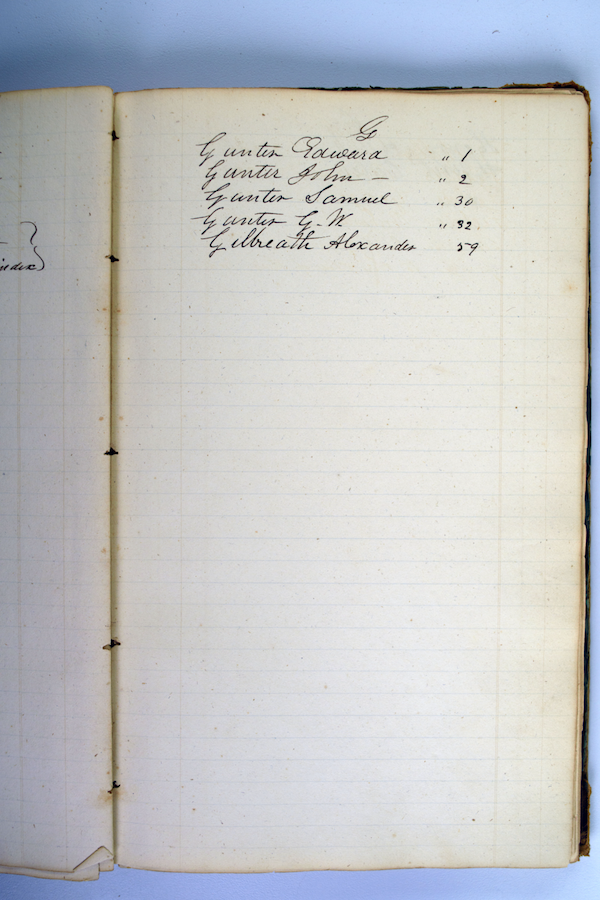 G
Gunter Edward " 1
Gunter John — " 2
Gunter Samuel " 30
Gunter G. W. " 32
Gilbreath Alexander 59
index}